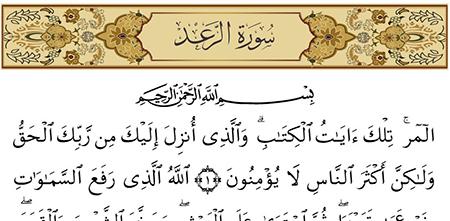 سُورَةُ الرَّعْدِ
بِسْمِ ٱللَّهِ ٱلرَّحْمَٰنِ ٱلرَّحِيمِ
الٓمٓرۚ تِلْكَ ءَايَٰتُ ٱلْكِتَٰبِۗ وَٱلَّذِىٓ أُنزِلَ إِلَيْكَ مِن رَّبِّكَ ٱلْحَقُّ
وَلَٰكِنَّ أَكْثَرَ ٱلنَّاسِ لَا يُؤْمِنُونَ ﴿١﴾ ٱللَّهُ ٱلَّذِى رَفَعَ ٱلسَّمَٰوَٰتِ